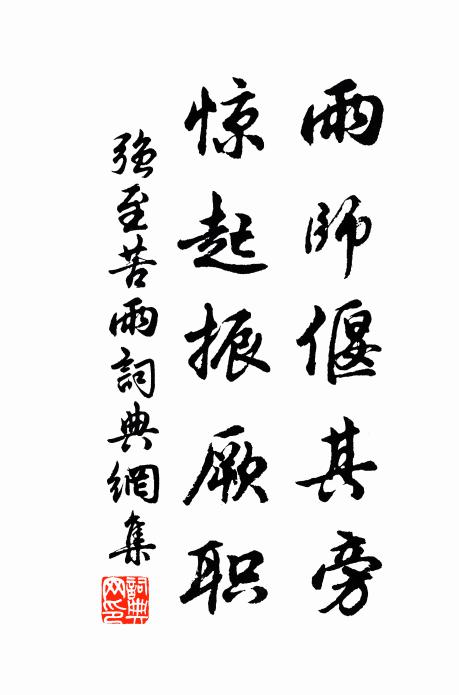 雨師偃其旁
惊起振厥职
強至苦雨詞典網集
詞典網印